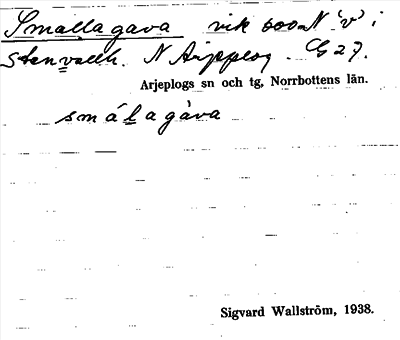 Smallagava vik 600m N 'v' i
Stenvallh. N Arjeplog. G 27.
Arjeplogs sn och tg, Norrbottens län.
smálagàva
Sigvard Wallström, 1938.